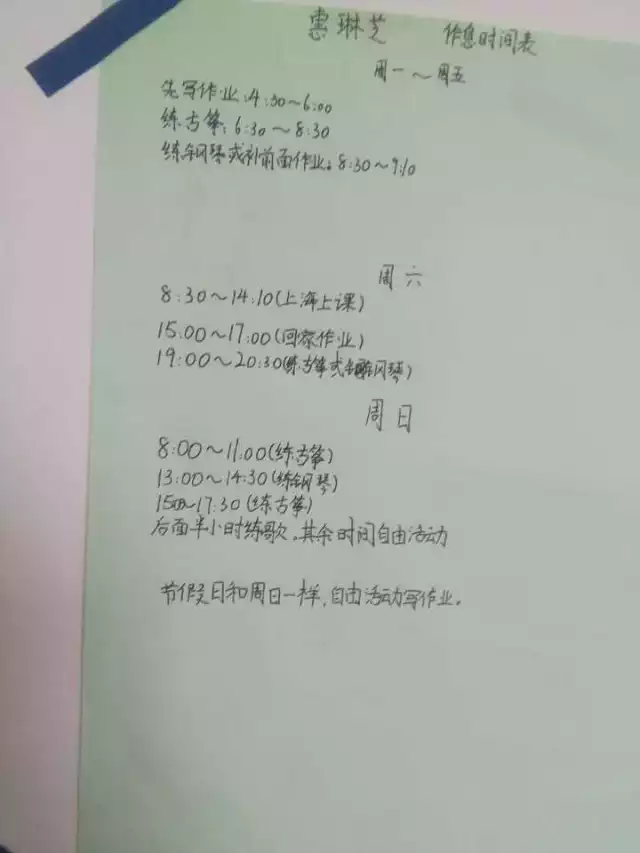 惠琳芝 作息时间表
周一~周五
先写作业:4:30~6:00
练古筝:6:30~8:30
练钢琴或补前面作业:8:30~9:10
周六
8:30~14:10(上海上课)
15:00~17:00(回家作业)
19:00~20:30(练古筝或钢琴)
周日
8:00~11:00(练古筝)
13:00~14:30(练钢琴)
1500~17:30(练古筝)
后面半小时练歌,其余时间自由活动
节假日和周日一样,自由活动写作业。